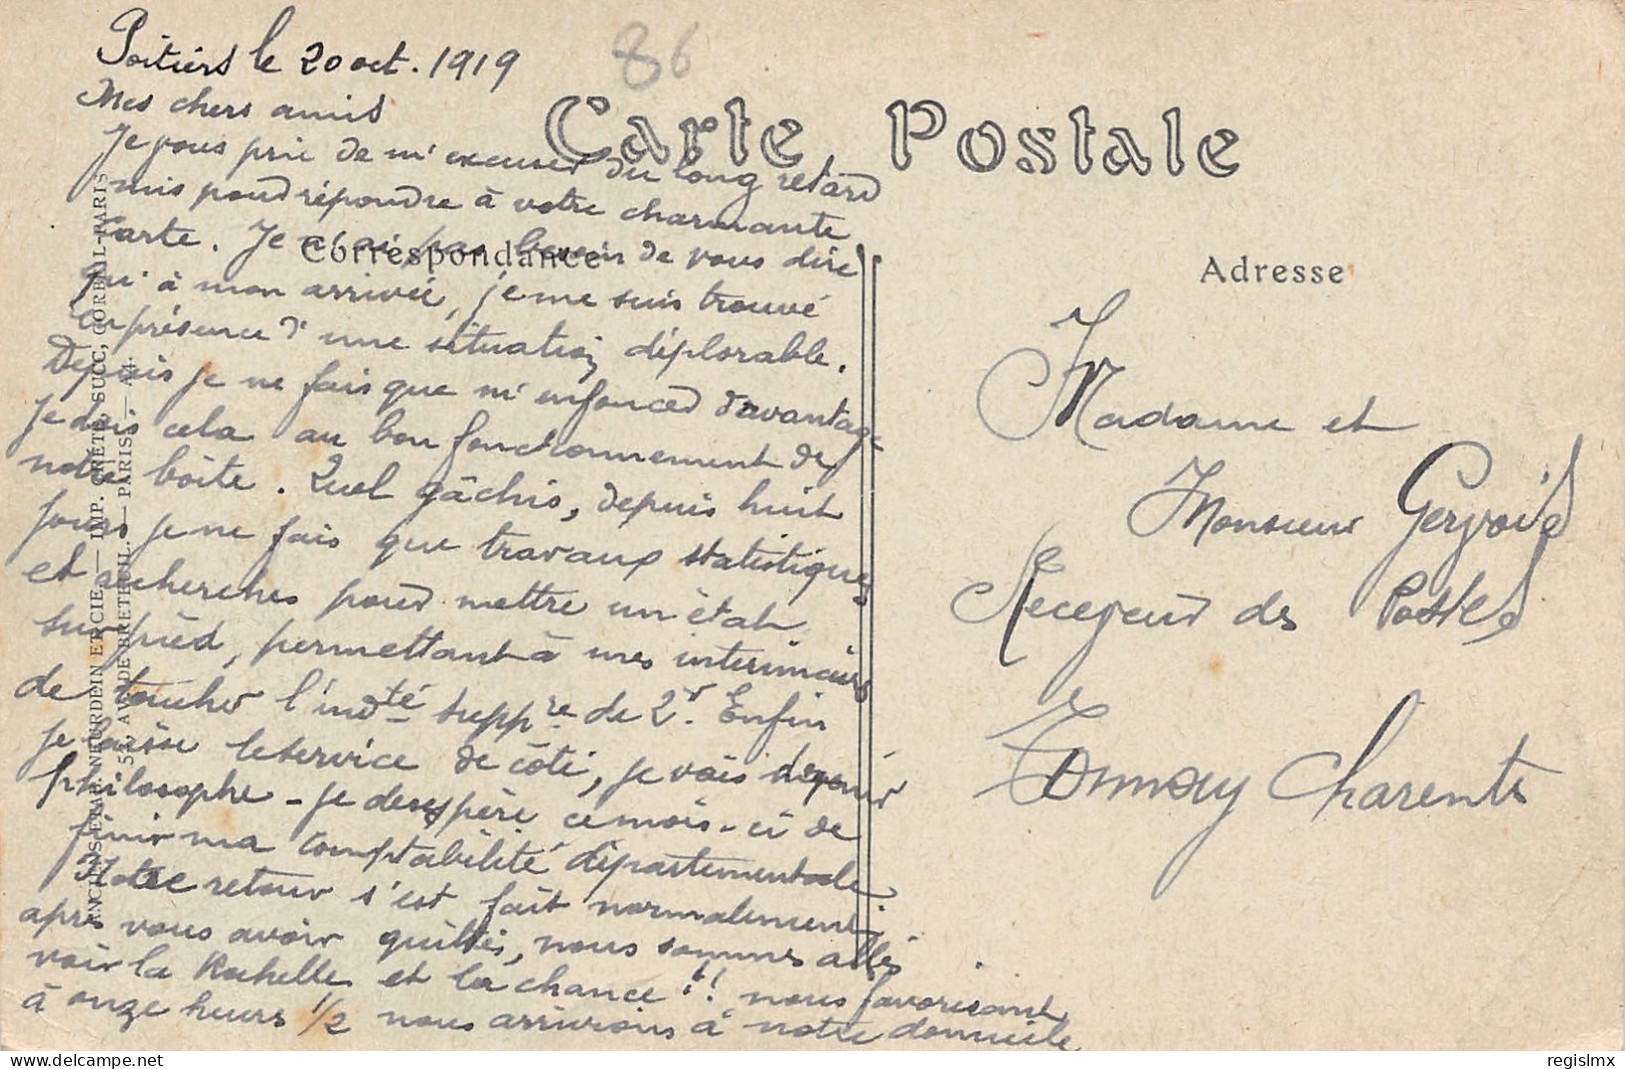 Poitiers le 20 oct. 1919
86
Mes chers amis
Carte Postale
Je vous prie de m'excuser du long retard
mis pour répondre à votre charmante
carte. Je n'ai pas besoin de vous dire
Correspondance
Adresse
qu'à mon arrivée, je me suis trouvé
en présence d'une situation déplorable.
Depuis je ne fais que m'enfoncer davantage
Je dois cela au bon fonctionnement de
notre boîte. Quel gâchis, depuis huit
jours je ne fais que travaux statistiques
et recherches pour mettre un état
sur pied, permettant à mes intérimaires
de toucher l'indté suppre de 2f. Enfin
je laisse le service de côté, je vais devenir
philosophe - je desespère ce mois-ci de
finir ma comptabilité départementale
Notre retour s'est fait normalement,
après vous avoir quittés, nous sommes allés
voir la Rochelle et la chance !! nous favorisant
à onze heures 1/2 nous arrivions à notre domicile
Madame et
Monsieur Gervais
Receveur des Postes
Tonnay Charente
ANCIENS ETAB. NEURDEIN ET CIE. — IMP. CRÉTÉ, SUCC, CORBEIL-PARIS
52, AV. DE BRETEUIL. — PARIS. —
regislmx
delcampe.net